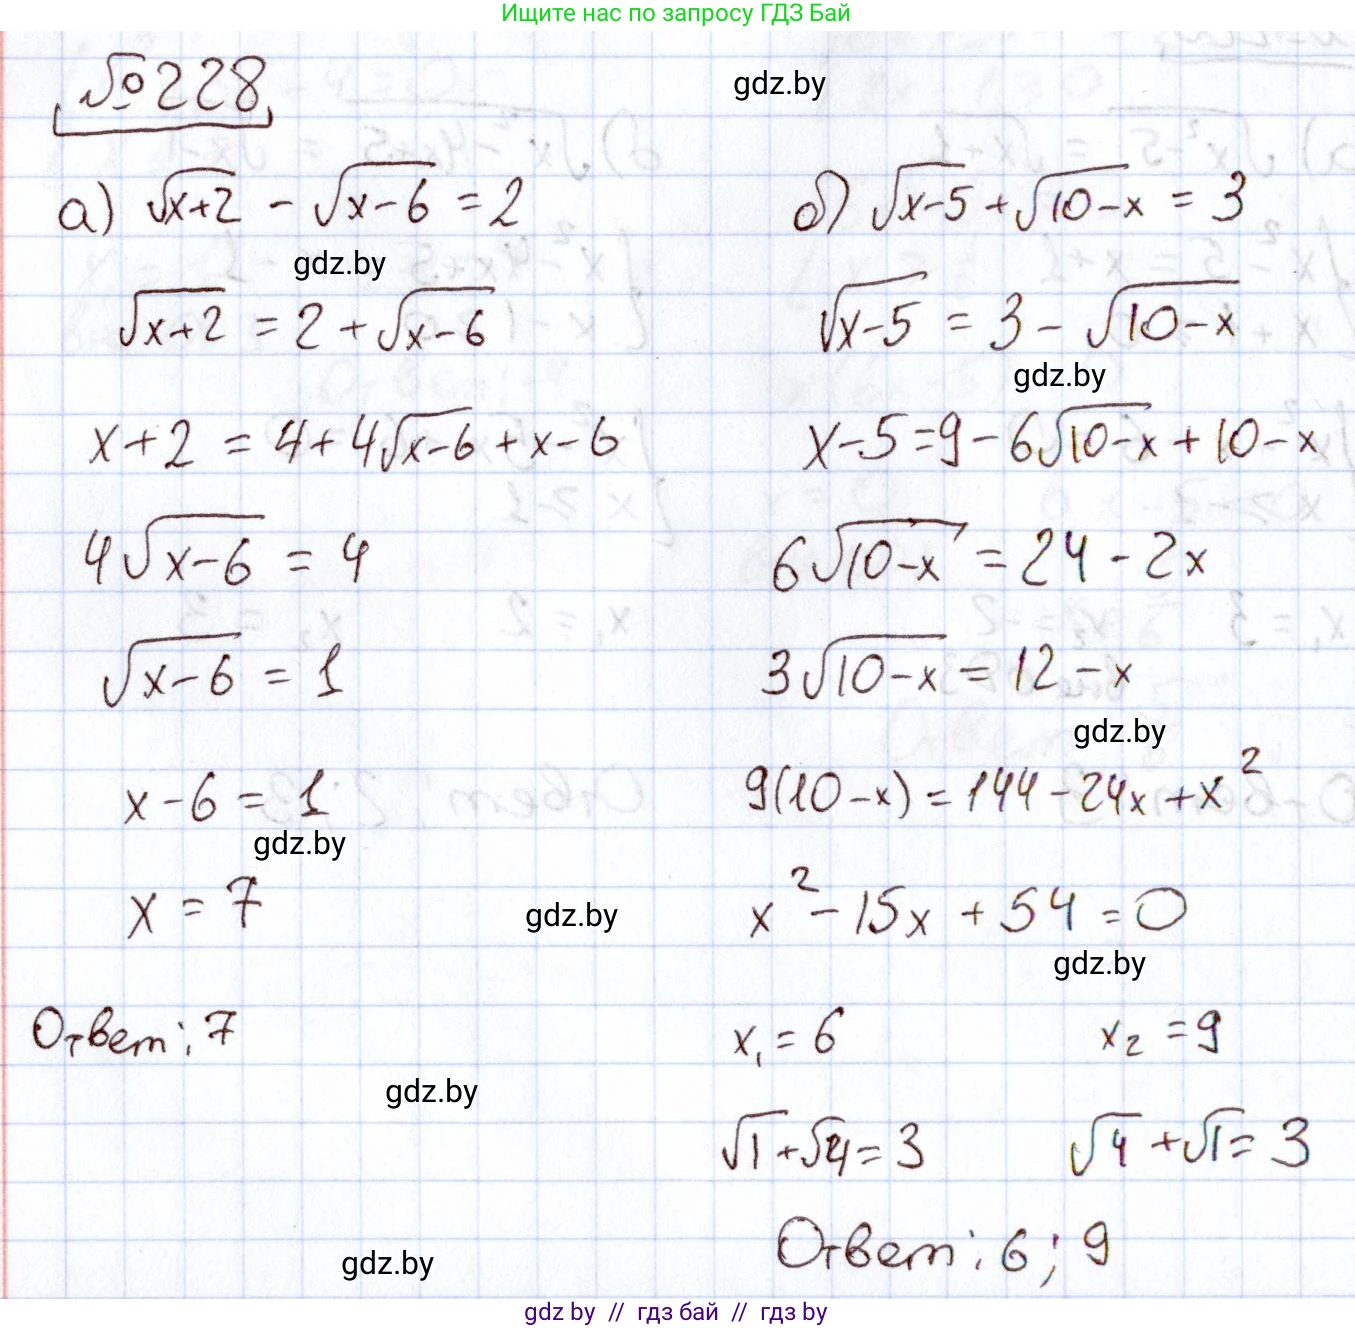 Ищите нас по запросу ГДЗ Бай
№228
gdz.by
а) √(x+2) - √(x-6) = 2
gdz.by
√(x+2) = 2 + √(x-6)
x+2 = 4+4√(x-6)+x-6
4√(x-6) = 4
√(x-6) = 1
x-6 = 1
gdz.by
x = 7
gdz.by
Ответ: 7
gdz.by
gdz.by
б) √(x-5) + √(10-x) = 3
√(x-5) = 3 - √(10-x)
gdz.by
x-5=9-6√(10-x)+10-x
6√(10-x) = 24-2x
3√(10-x) = 12-x
gdz.by
9(10-x) = 144-24x+x²
x²-15x+54=0
gdz.by
x₁=6 x₂=9
√1+√4=3 √4+√1=3
Ответ: 6; 9
gdz.by // гдз бай // гдз by